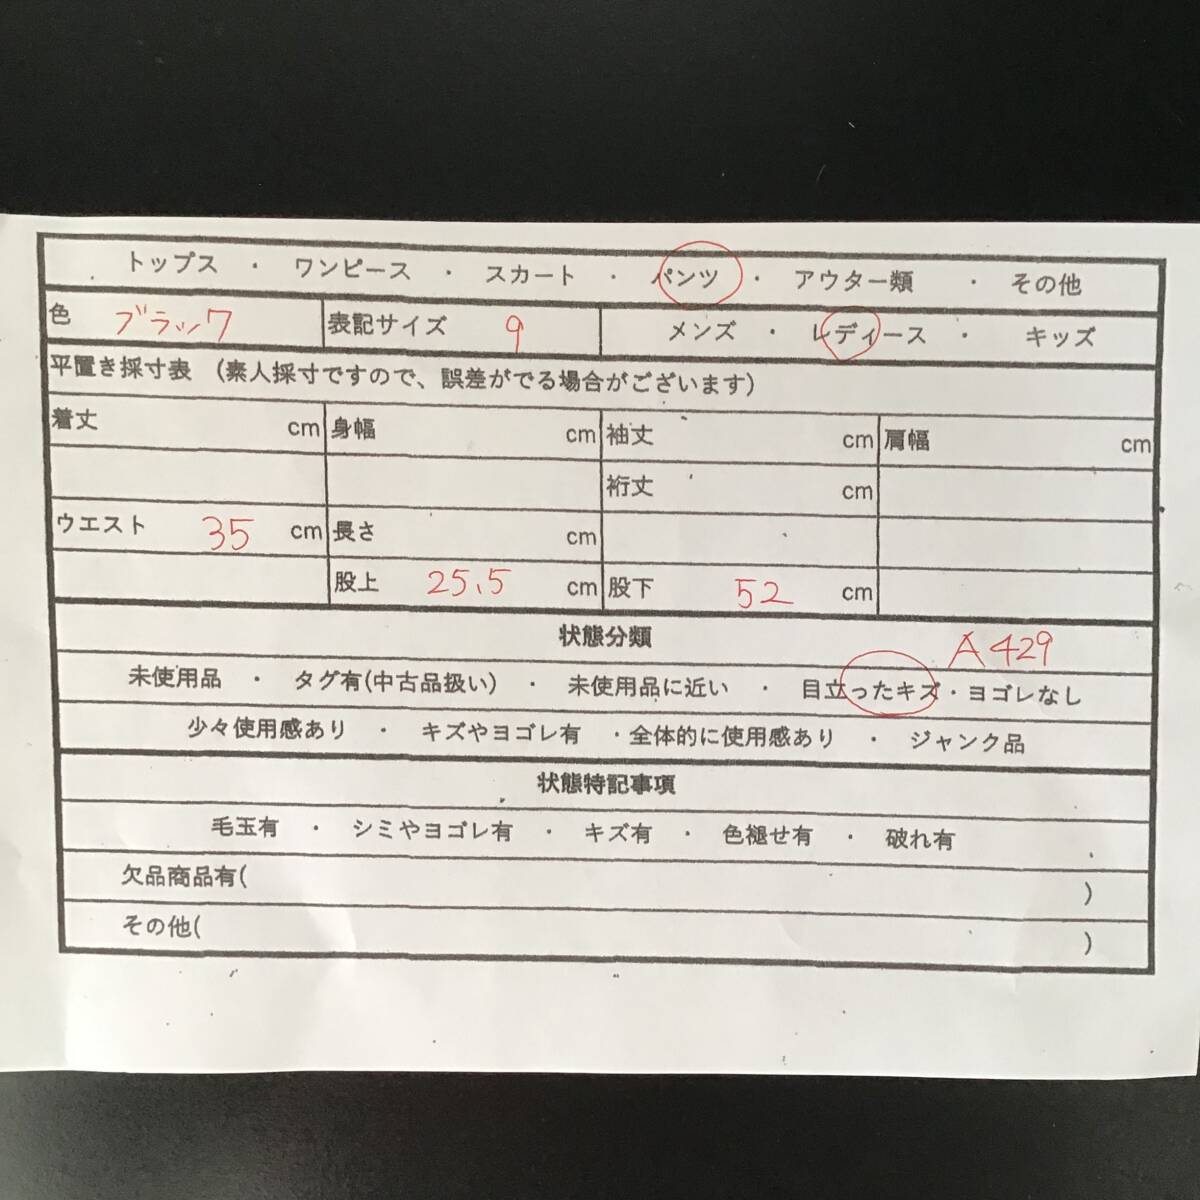 トップス ・ ワンピース ・ スカート ・ パンツ ・ アウター類 ・ その他
色 ブラック 表記サイズ 9 メンズ ・ レディース ・ キッズ
平置き採寸表 (素人採寸ですので、誤差がでる場合がございます)
着丈 cm 身幅 cm 袖丈 cm 肩幅 cm
裄丈 cm
ウエスト 35 cm 長さ cm
股上 25.5 cm 股下 52 cm
状態分類 A429
未使用品 ・ タグ有(中古品扱い) ・ 未使用品に近い ・ 目立ったキズ・ヨゴレなし
少々使用感あり ・ キズやヨゴレ有 ・全体的に使用感あり ・ ジャンク品
状態特記事項
毛玉有 ・ シミやヨゴレ有 ・ キズ有 ・ 色褪せ有 ・ 破れ有
欠品商品有( )
その他( )